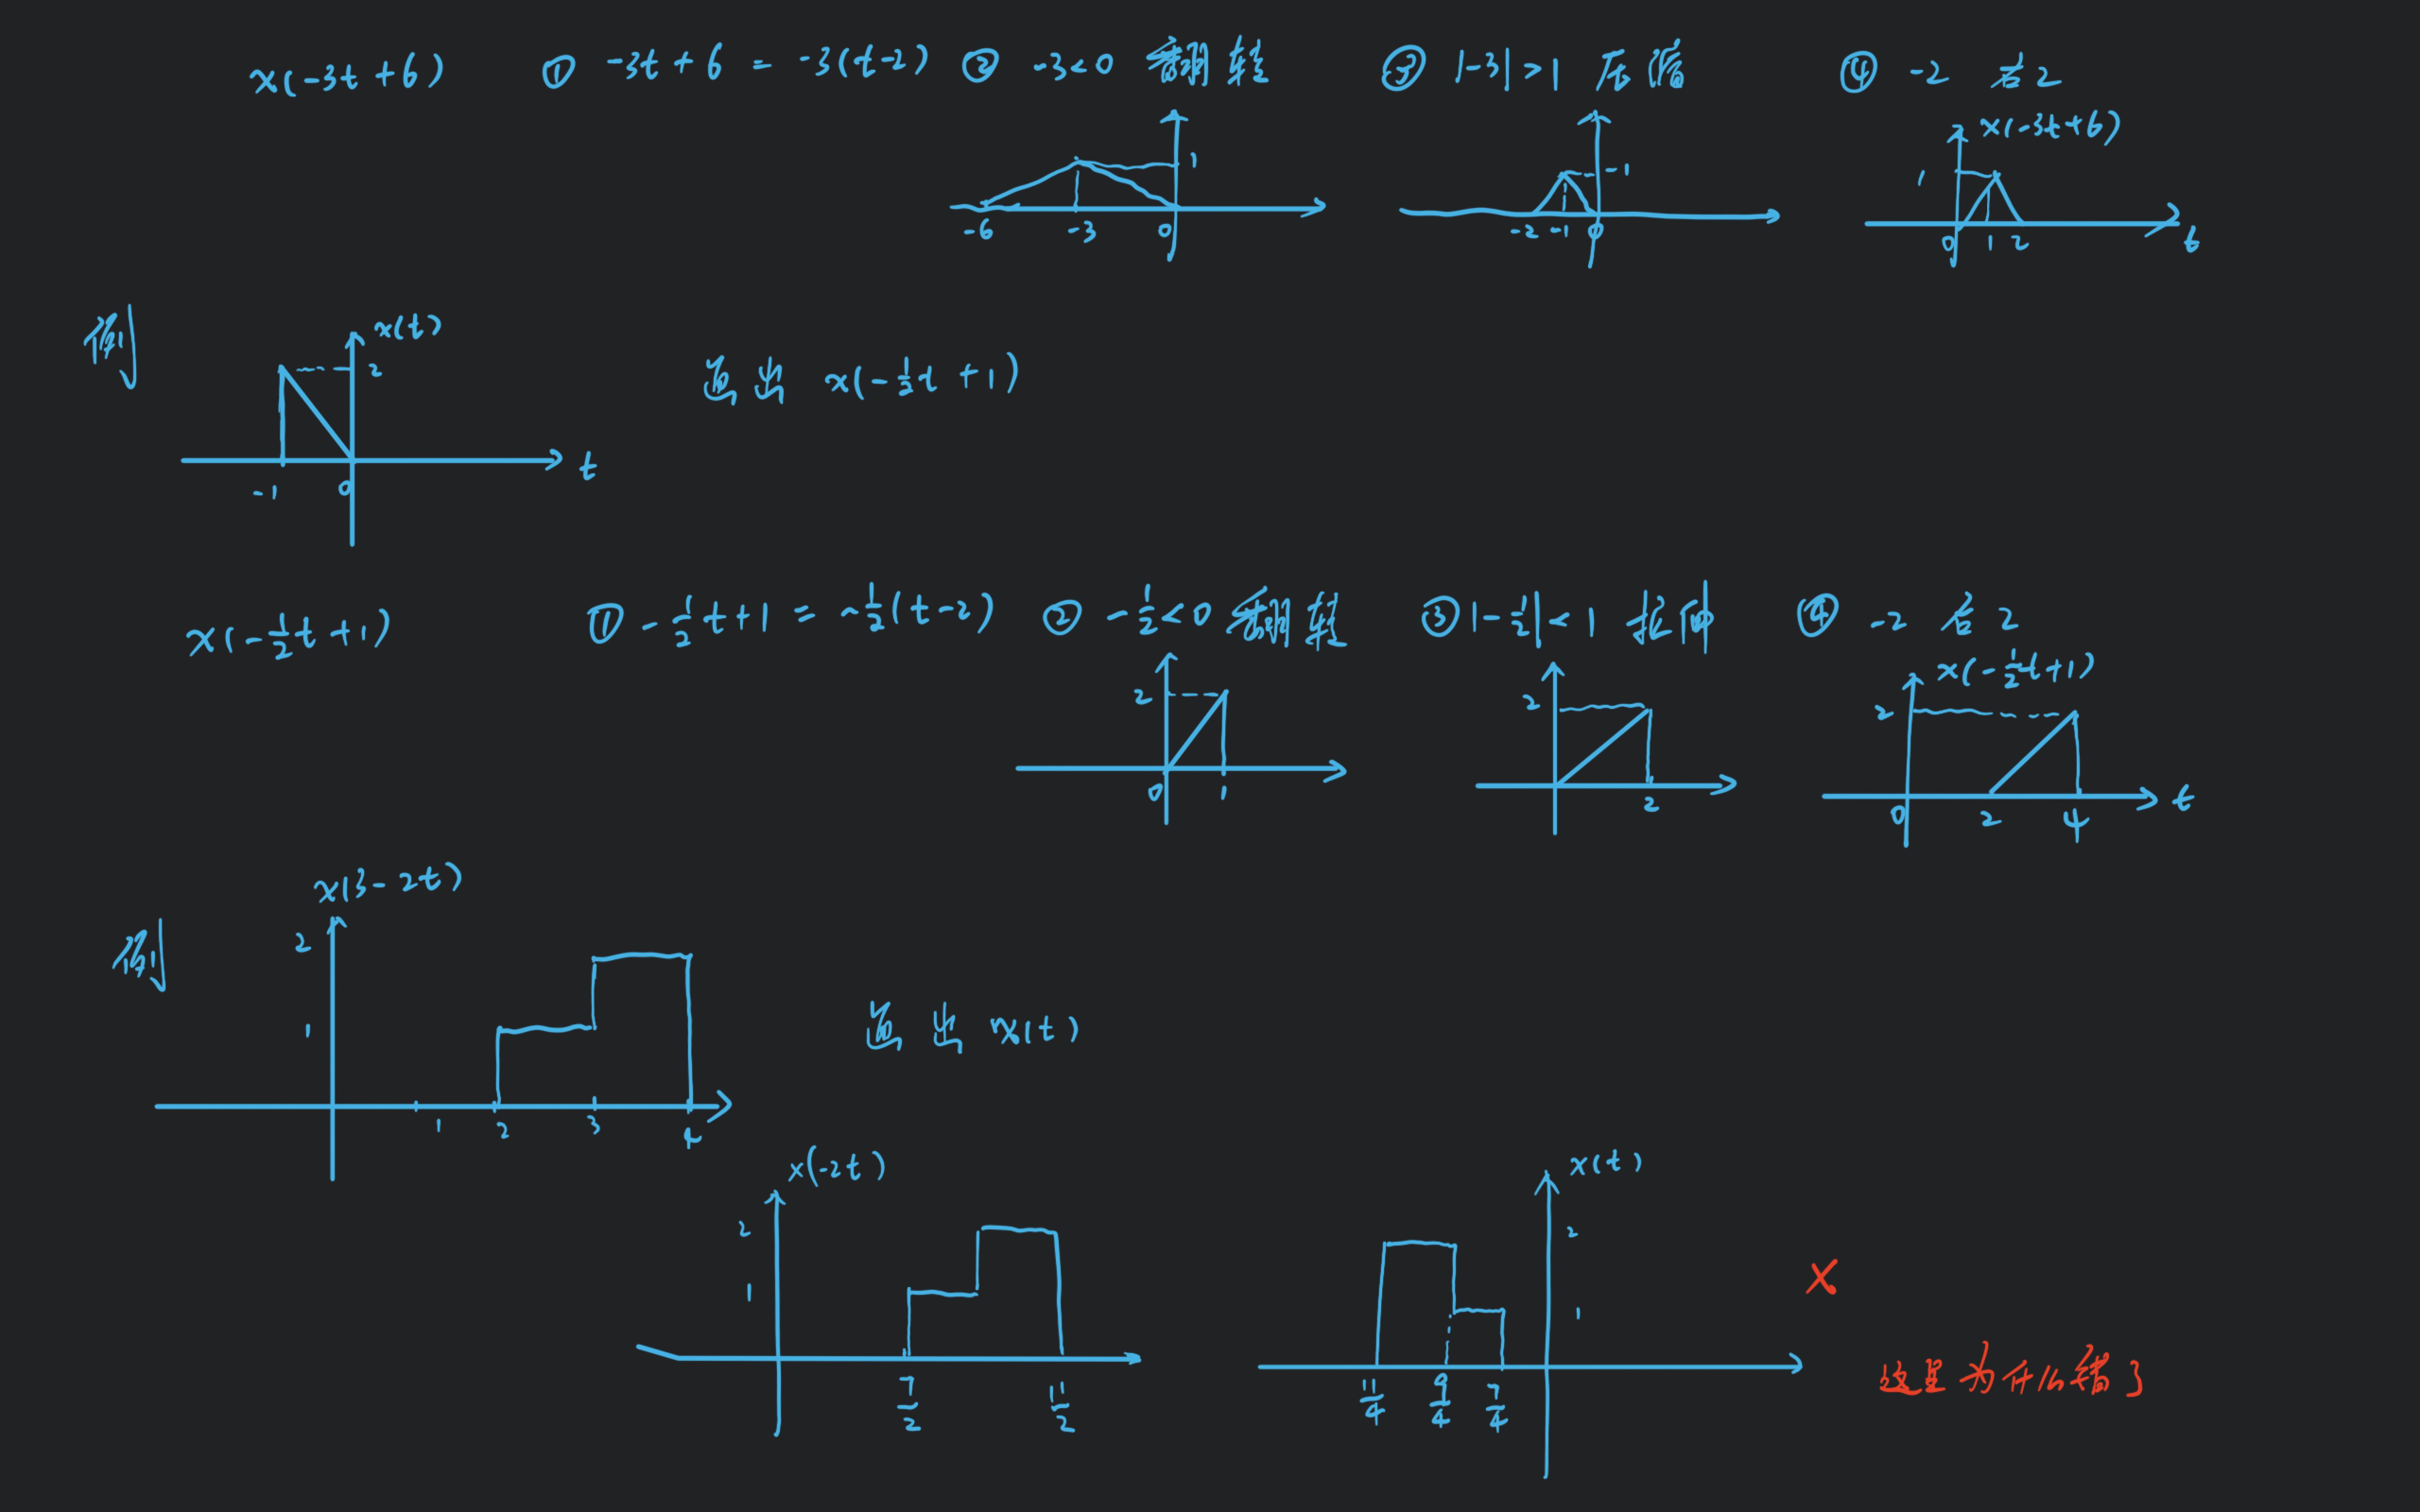 x(-3t+6) ① -3t+6 = -3(t-2) ② -3<0 需翻转 ③ |-3|>1 压缩 ④ -2 右2
1 -6 -3 0
1 -2 -1 0
x(-3t+6) 1 0 1 2 t
例 x(t) 2 -1 0 t 画出 x(-1/2t+1)
x(-1/2t+1) ① -1/2t+1 = -1/2(t-2) ② -1/2<0 需翻转 ③ |-1/2|<1 拉伸 ④ -2 右2
2 0 1
2 2
x(-1/2t+1) 2 0 2 4 t
例 x(3-2t) 2 1 1 2 3 4 画出 x(t)
x(-2t) 2 1 7/2 11/2
x(t) 2 1 11/4 9/4 7/4
×
这里为什么错了